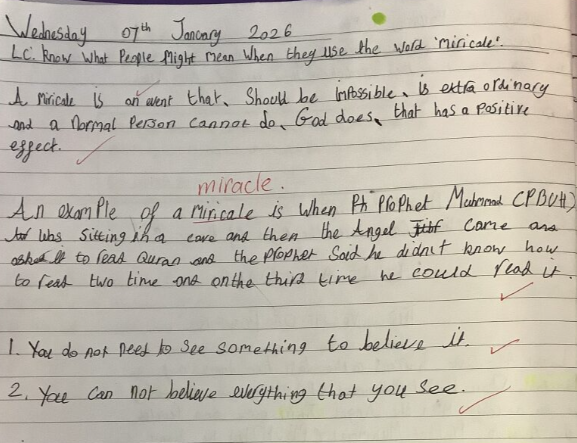 Wednesday 07th January 2026
LC: Know what People Might mean when they use the word 'miricale'.
A miricale is an event that, should be impossible, is extra ordinary
and a normal Person cannot do, God does, that has a positive
effect.
miracle.
An example of a miricale is when Ph Prophet Muhmmad (PBUH)
was sitting in a cave and then the Angel came and
asked to read Quran and the Prophet said he didnit know how
to read two time and on the third time he could read it.
1. You do not need to see something to believe it.
2. You can not believe everything that you see.